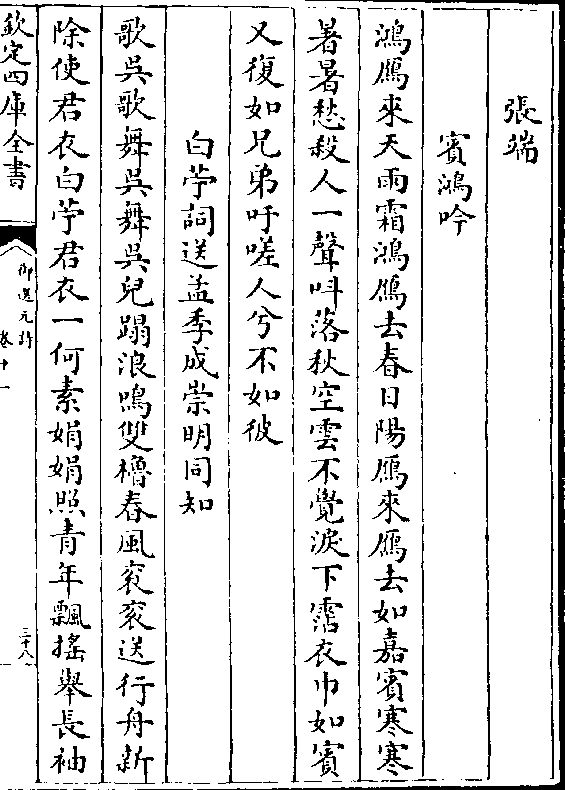 張端
賓鴻吟
鴻鴈來天雨霜鴻鴈去春日陽鴈來鴈去如嘉賓寒寒
暑暑愁殺人一聲呌落秋空雲不覺淚下霑衣巾如賓
又復如兄弟吁嗟人兮不如彼
白苧詞送孟季成崇明同知
歌吳歌舞吳舞吳兒蹋浪鳴雙櫓春風衮衮送行舟新
除使君衣白苧君衣一何素娟娟照青年飄摇舉長袖
欽定四庫全書
御選元詩
卷十一
三十八